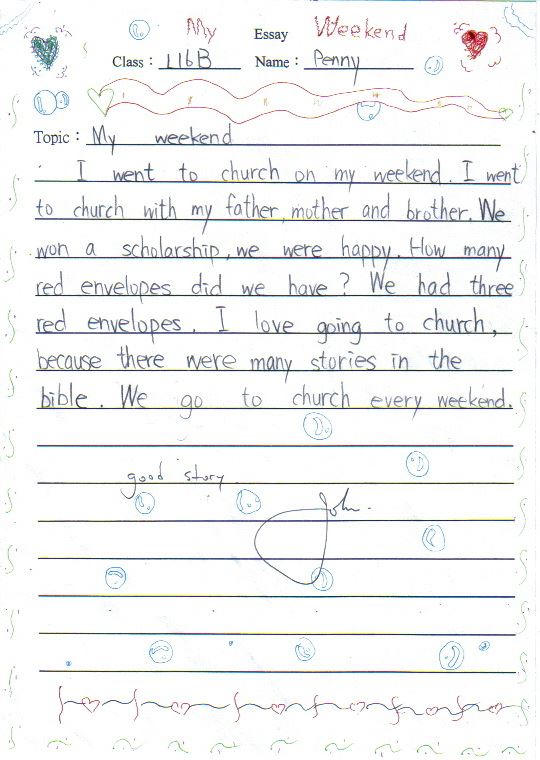 My Essay Weekend
Class : L16B Name : Penny
Topic : My weekend
I went to church on my weekend. I went
to church with my father, mother and brother. We
won a scholarship, we were happy. How many
red envelopes did we have? We had three
red envelopes. I love going to church,
because there were many stories in the
bible. We go to church every weekend.
good story
John.